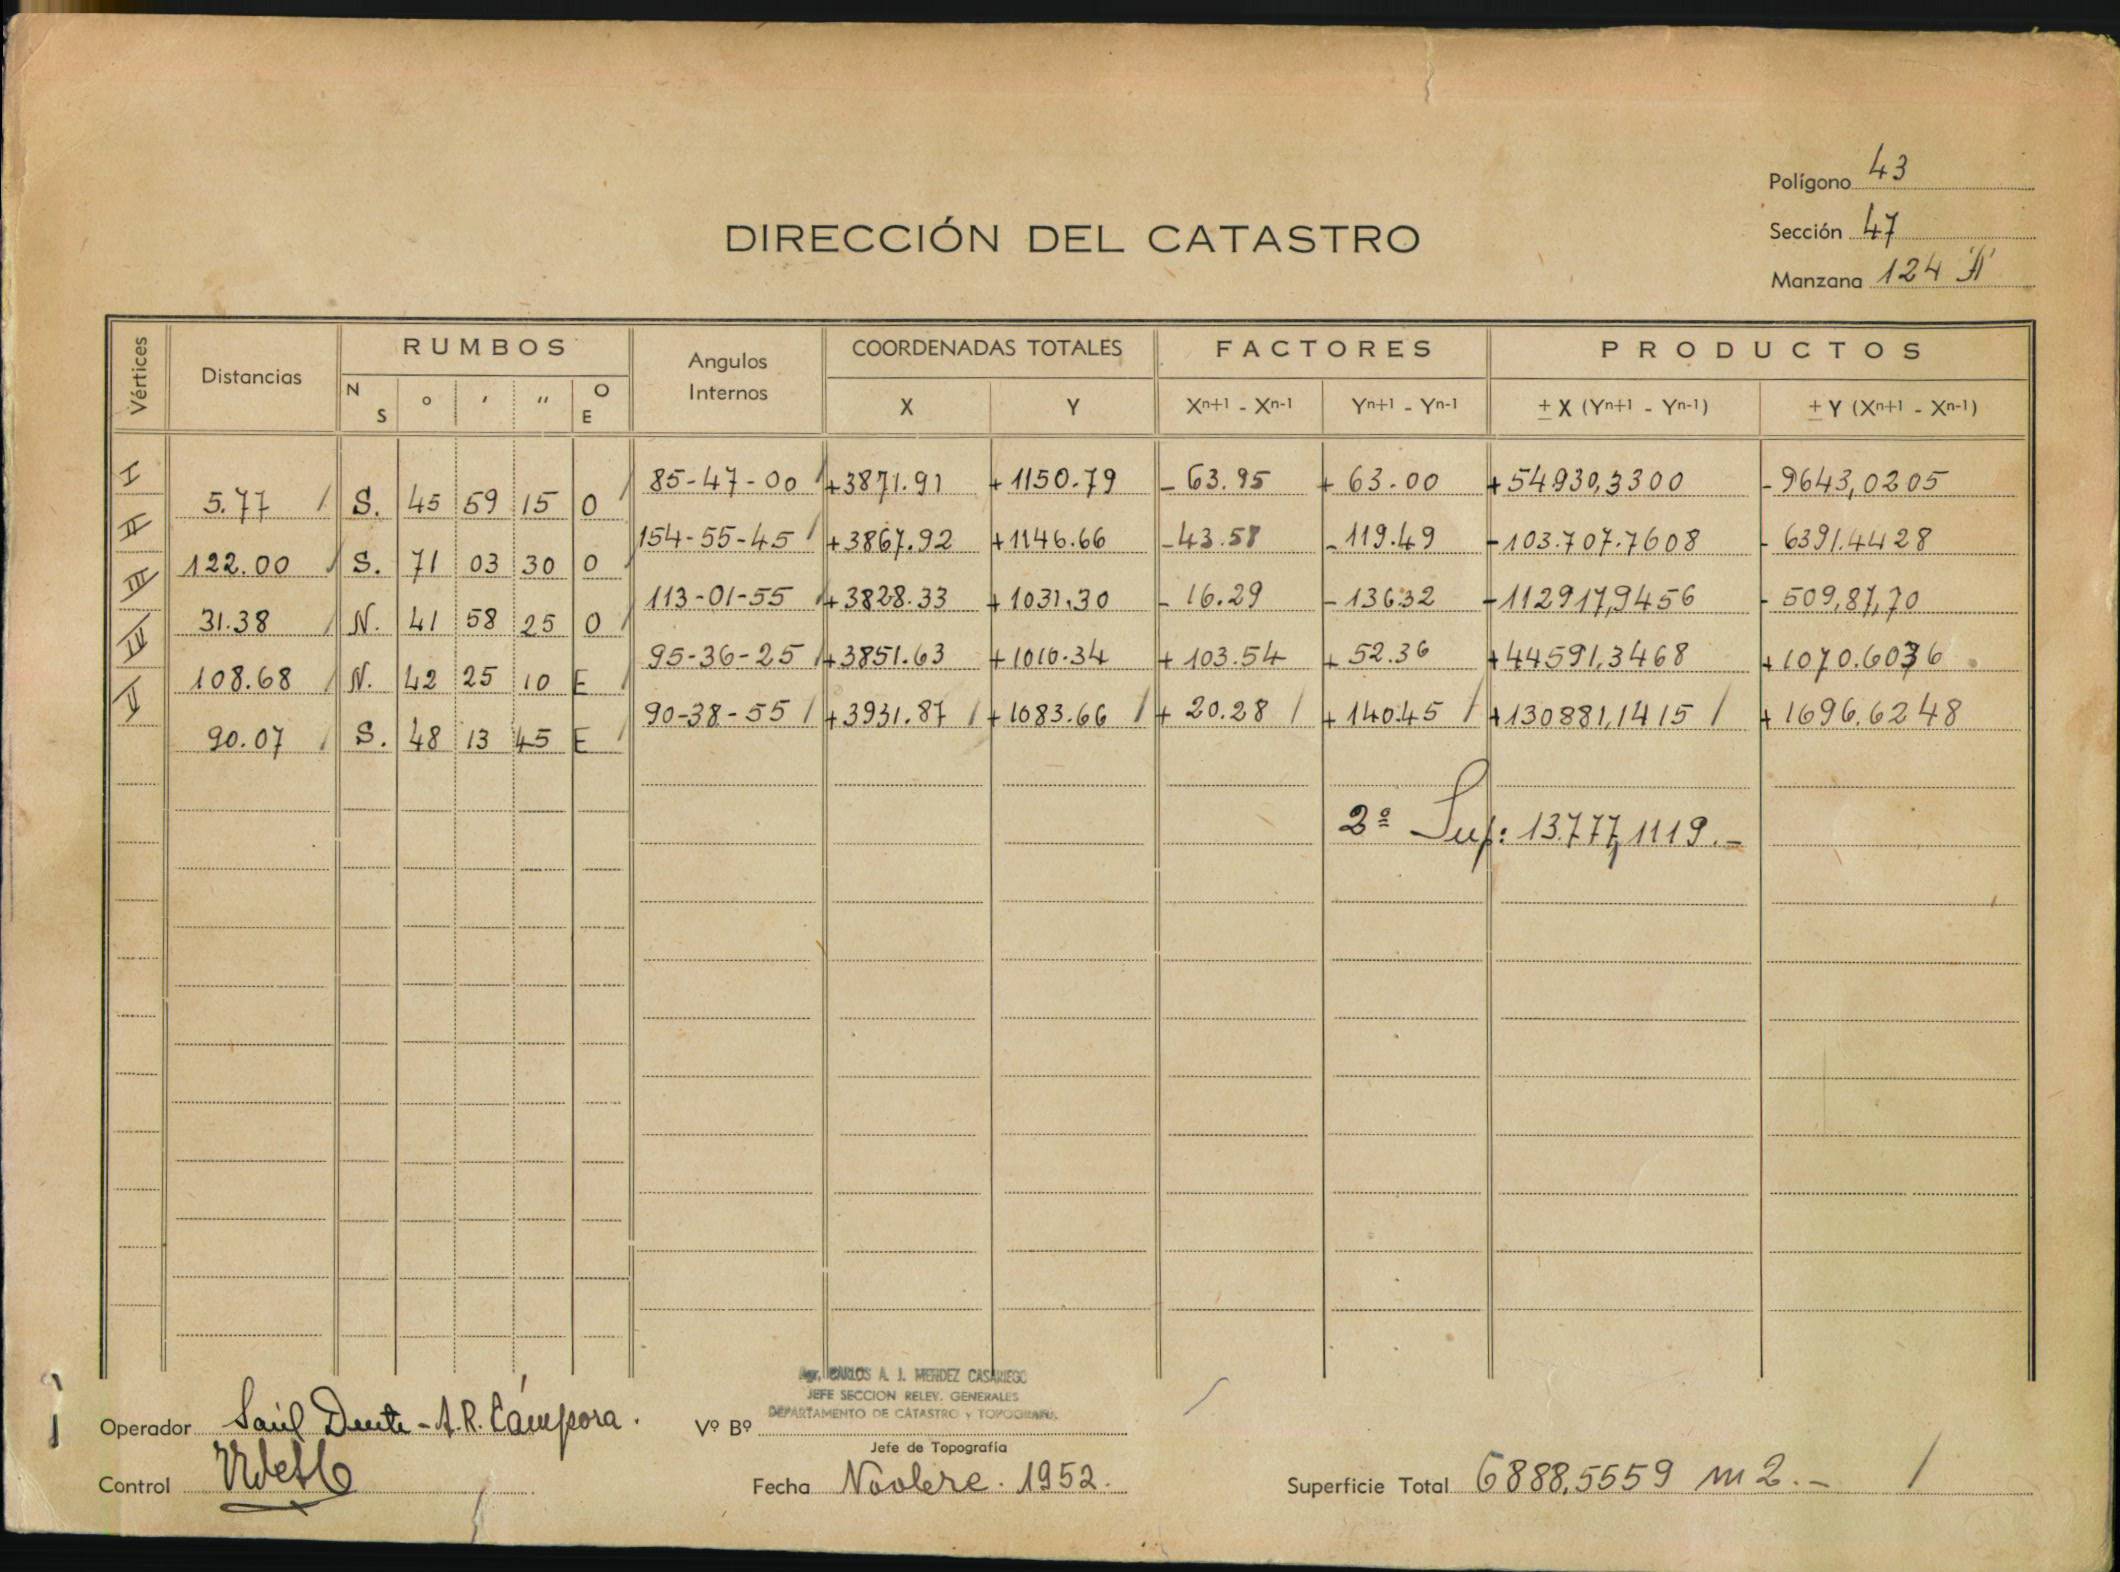 Polígono 43
DIRECCIÓN DEL CATASTRO
Sección 47
Manzana 124 "A"
Vértices Distancias RUMBOS Angulos Internos COORDENADAS TOTALES FACTORES PRODUCTOS
N S ° ' " O E X Y Xn+1 - Xn-1 Yn+1 - Yn-1 ± X (Yn+1 - Yn-1) ± Y (Xn+1 - Xn-1)
I 85-47-00 +3871.91 +1150.79 - 63.95 + 63.00 +54930,3300 - 9643,0205
5.77 S. 45 59 15 O
II 154-55-45 +3867.92 +1146.66 -43.58 -119.49 -103.707.7608 - 6391.4428
122.00 S. 71 03 30 O
III 113-01-55 +3828.33 +1031.30 - 16.29 -136.32 -112917,9456 - 509,87,70
31.38 N. 41 58 25 O
IV 95-36-25 +3851.63 +1010.34 + 103.54 + 52.36 +44591,3468 +1070.6036
108.68 N. 42 25 10 E
V 90-38-55 +3931.87 +1083.66 + 20.28 +140.45 +130881,1415 +1696.6248
90.07 S. 48 13 45 E
2º Sup: 13.777,1119.-
Agr. CARLOS A. J. MENDEZ CASARIEGO
JEFE SECCION RELEV. GENERALES
DEPARTAMENTO DE CATASTRO y TOPOGRAFIA
Operador Saúl Dente - A.R. Cámpora.
Vº Bº
Jefe de Topografía
Control
Fecha Novbre. 1952.
Superficie Total 6888,5559 m2.-